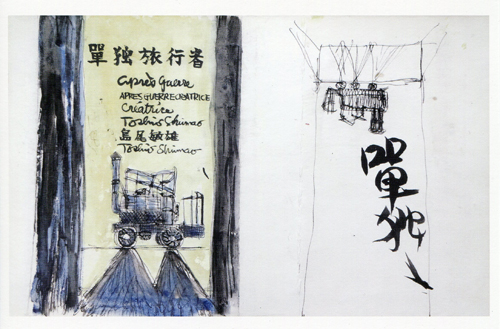 單独旅行者
après guerre
APRES GUERRE CREATRICE
Créatrice
Toshio Shimao
島尾敏雄
Toshio Shimao
單独